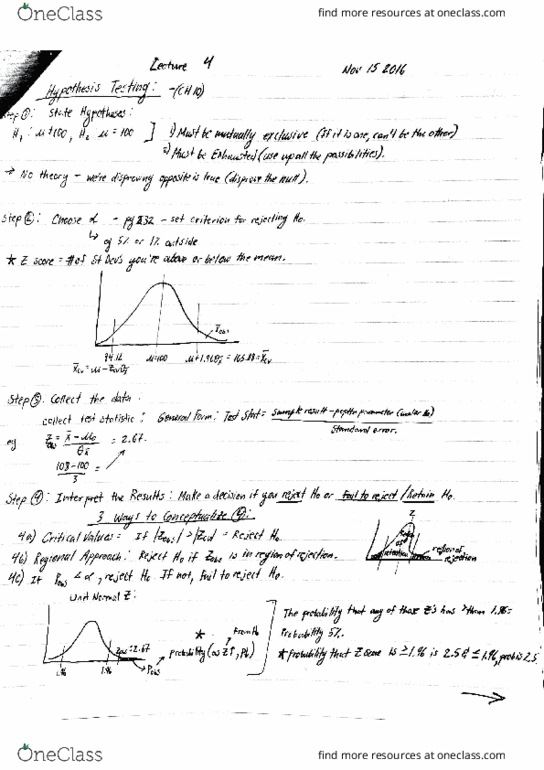 OneClass
find more resources at oneclass.com
Lecture 4
Nov 15 2016
Hypothesis Testing: - (CH 10)
Step ①: State Hypotheses:
H₁: μ≠100, H₀ μ = 100 ] 1) Must be mutually exclusive (if it is one, can't be the other)
2) Must be Exhausted (use up all the possibilities).
→ No theory - we're disproving opposite is true (disprove the null).
Step ②: Choose α - pg 232 - set criterion for rejecting H₀.
↳ eg 5% or 1% outside
* Z score = # of St Devs you're above or below the mean.
X̄obs
94.12 μ=100 μ+1.96σx̄ = 105.88 = X̄cv
X̄cv = μ - Zcvσx̄
Step ③: Collect the data.
collect test statistic: General Form: Test Stat = sample result - popltn parameter (under H₀)
Standard error.
eg Zobs = x̄ - μ₀ / σx̄ = 2.67.
103-100 / 3 =
Step ④: Interpret the Results: Make a decision if you reject H₀ or fail to reject / Retain H₀.
3 Ways to Conceptualize ④:
4a) Critical Values = If |Zobs| > |Zcv| = Reject H₀.
4b) Regional Approach: Reject H₀ if Zobs is in region of rejection.
4c) If Pobs < α, reject H₀. If not, fail to reject H₀.
Z
region of
retention
region of
rejection
Unit Normal Z:
The probability that any of those Z's has > than 1.96 =
Probability 5%.
* probability that Z score is ≥ 1.96 is 2.5 & ≤ 1.96, prob is 2.5
* From H₀
probability (as Z↑, P↓)
Zobs = 2.67
1.96 1.96
Pobs
OneClass
find more resources at oneclass.com